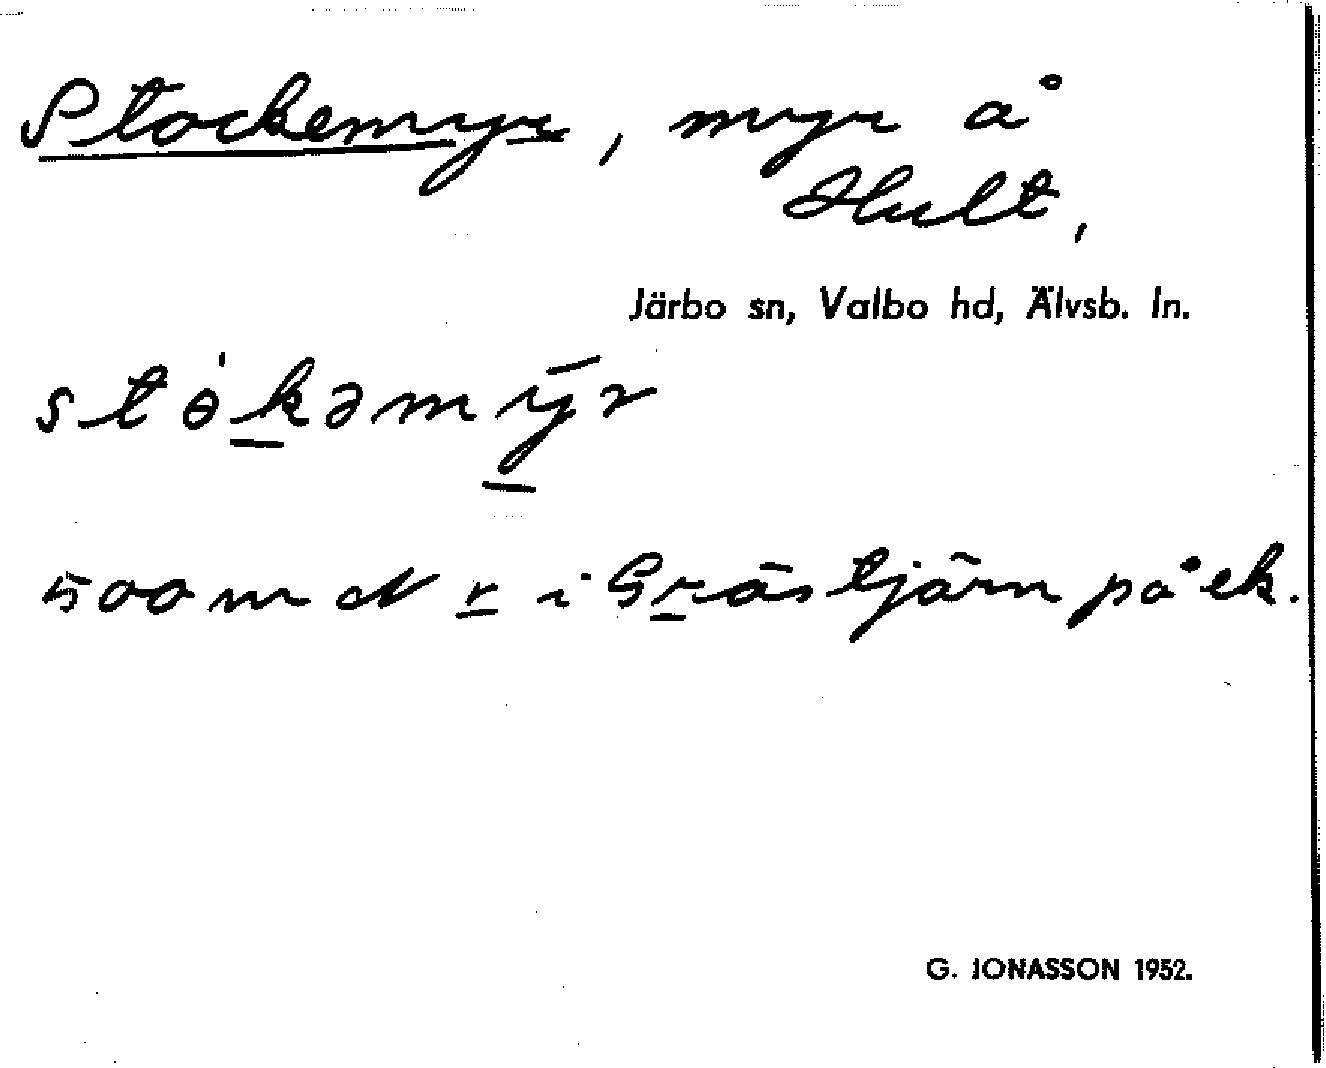 Stockemyr, myr å
Hult,
Järbo sn, Valbo hd, Älvsb. ln.
stɵ́kəmȳr
500 m N r i Gräs tjärn på ek.
G. JONASSON 1952.